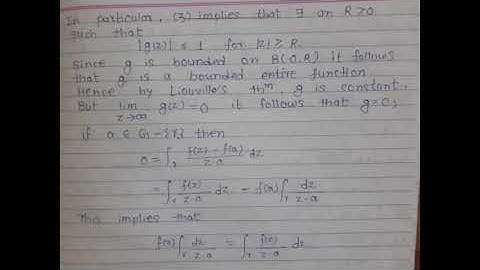 In particular, (3) implies that ∃ an R>0
such that
|g(z)| ≤ 1 for |z| ≥ R.
Since g is bounded on B(0,R) it follows
that g is a bounded entire function
Hence by Liouville's thm, g is constant.
But lim z→∞ g(z)=0 it follows that g≡0;
if a ∈ G-{γ} then
0 = ∫γ f(z)-f(a)/z-a dz
= ∫γ f(z)/z-a dz - f(a)∫γ dz/z-a
This implies that
f(a)∫γ dz/z-a = ∫γ f(z)/z-a dz